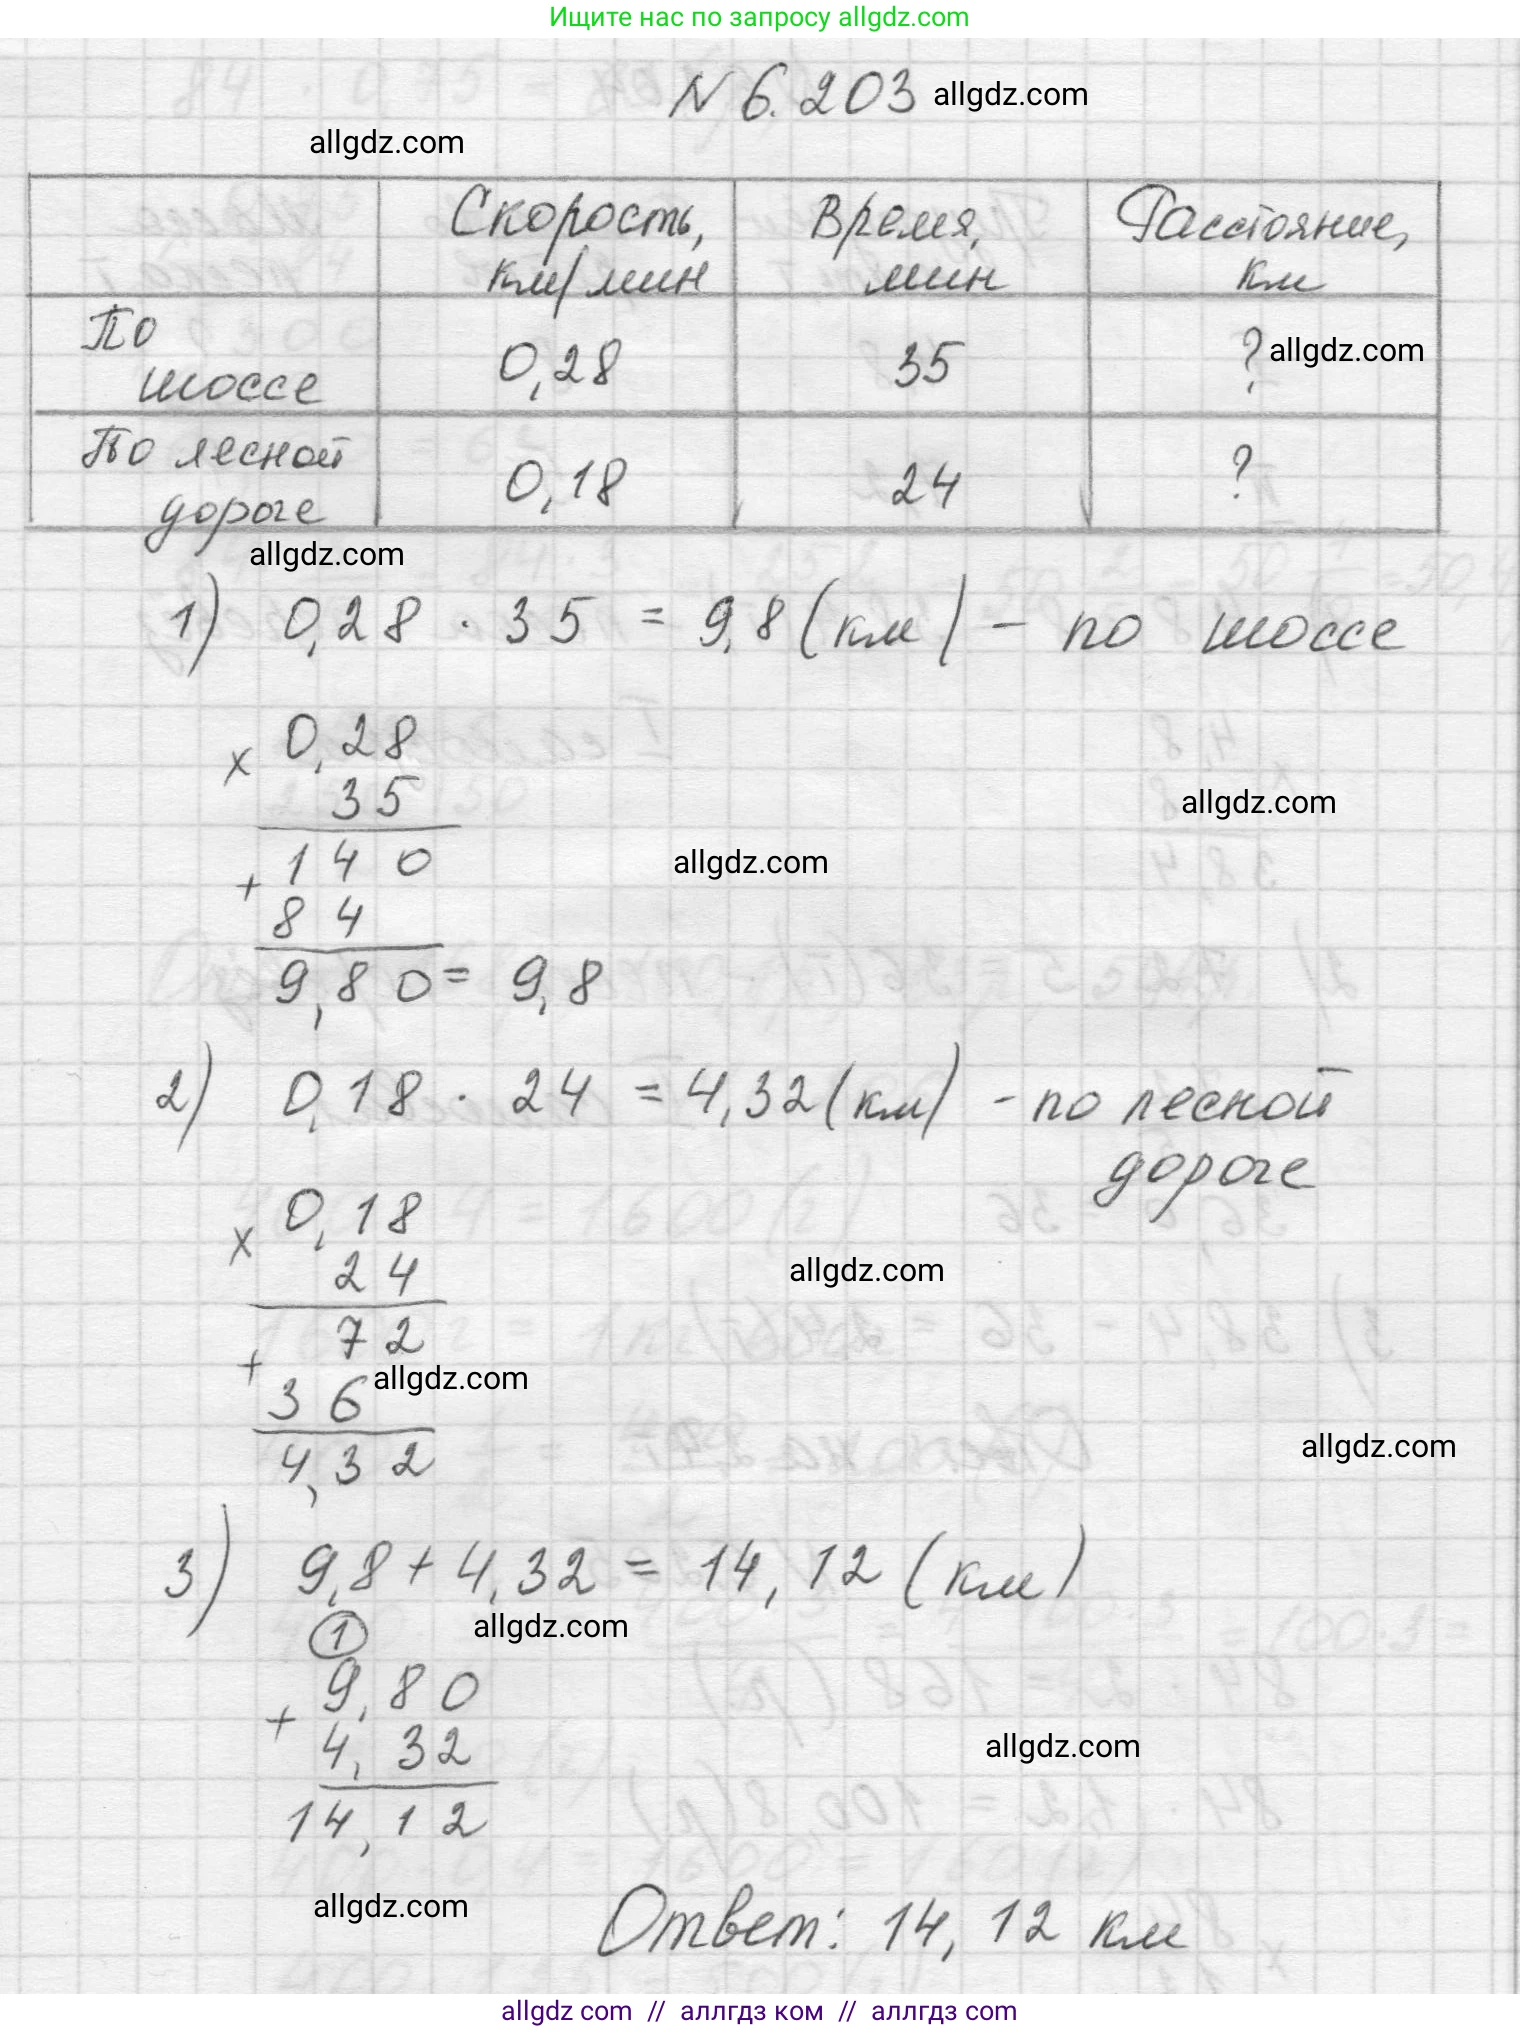 Ищите нас по запросу allgdz.com
N 6.203 allgdz.com
allgdz.com
Скорость, Время, Расстояние,
км/мин мин км
По шоссе 0,28 35 ? allgdz.com
По лесной дороге 0,18 24 ?
allgdz.com
1) 0,28 · 35 = 9,8 (км) - по шоссе
x 0,28
35
allgdz.com
+ 140
allgdz.com
84
9,80 = 9,8
2) 0,18 · 24 = 4,32 (км) - по лесной
дороге
x 0,18
24
allgdz.com
+ 72
36 allgdz.com
4,32
allgdz.com
3) 9,8 + 4,32 = 14,12 (км)
1 allgdz.com
+ 9,80
4,32
allgdz.com
14,12
allgdz.com
Ответ: 14,12 км
allgdz com // аллгдз ком // аллгдз com